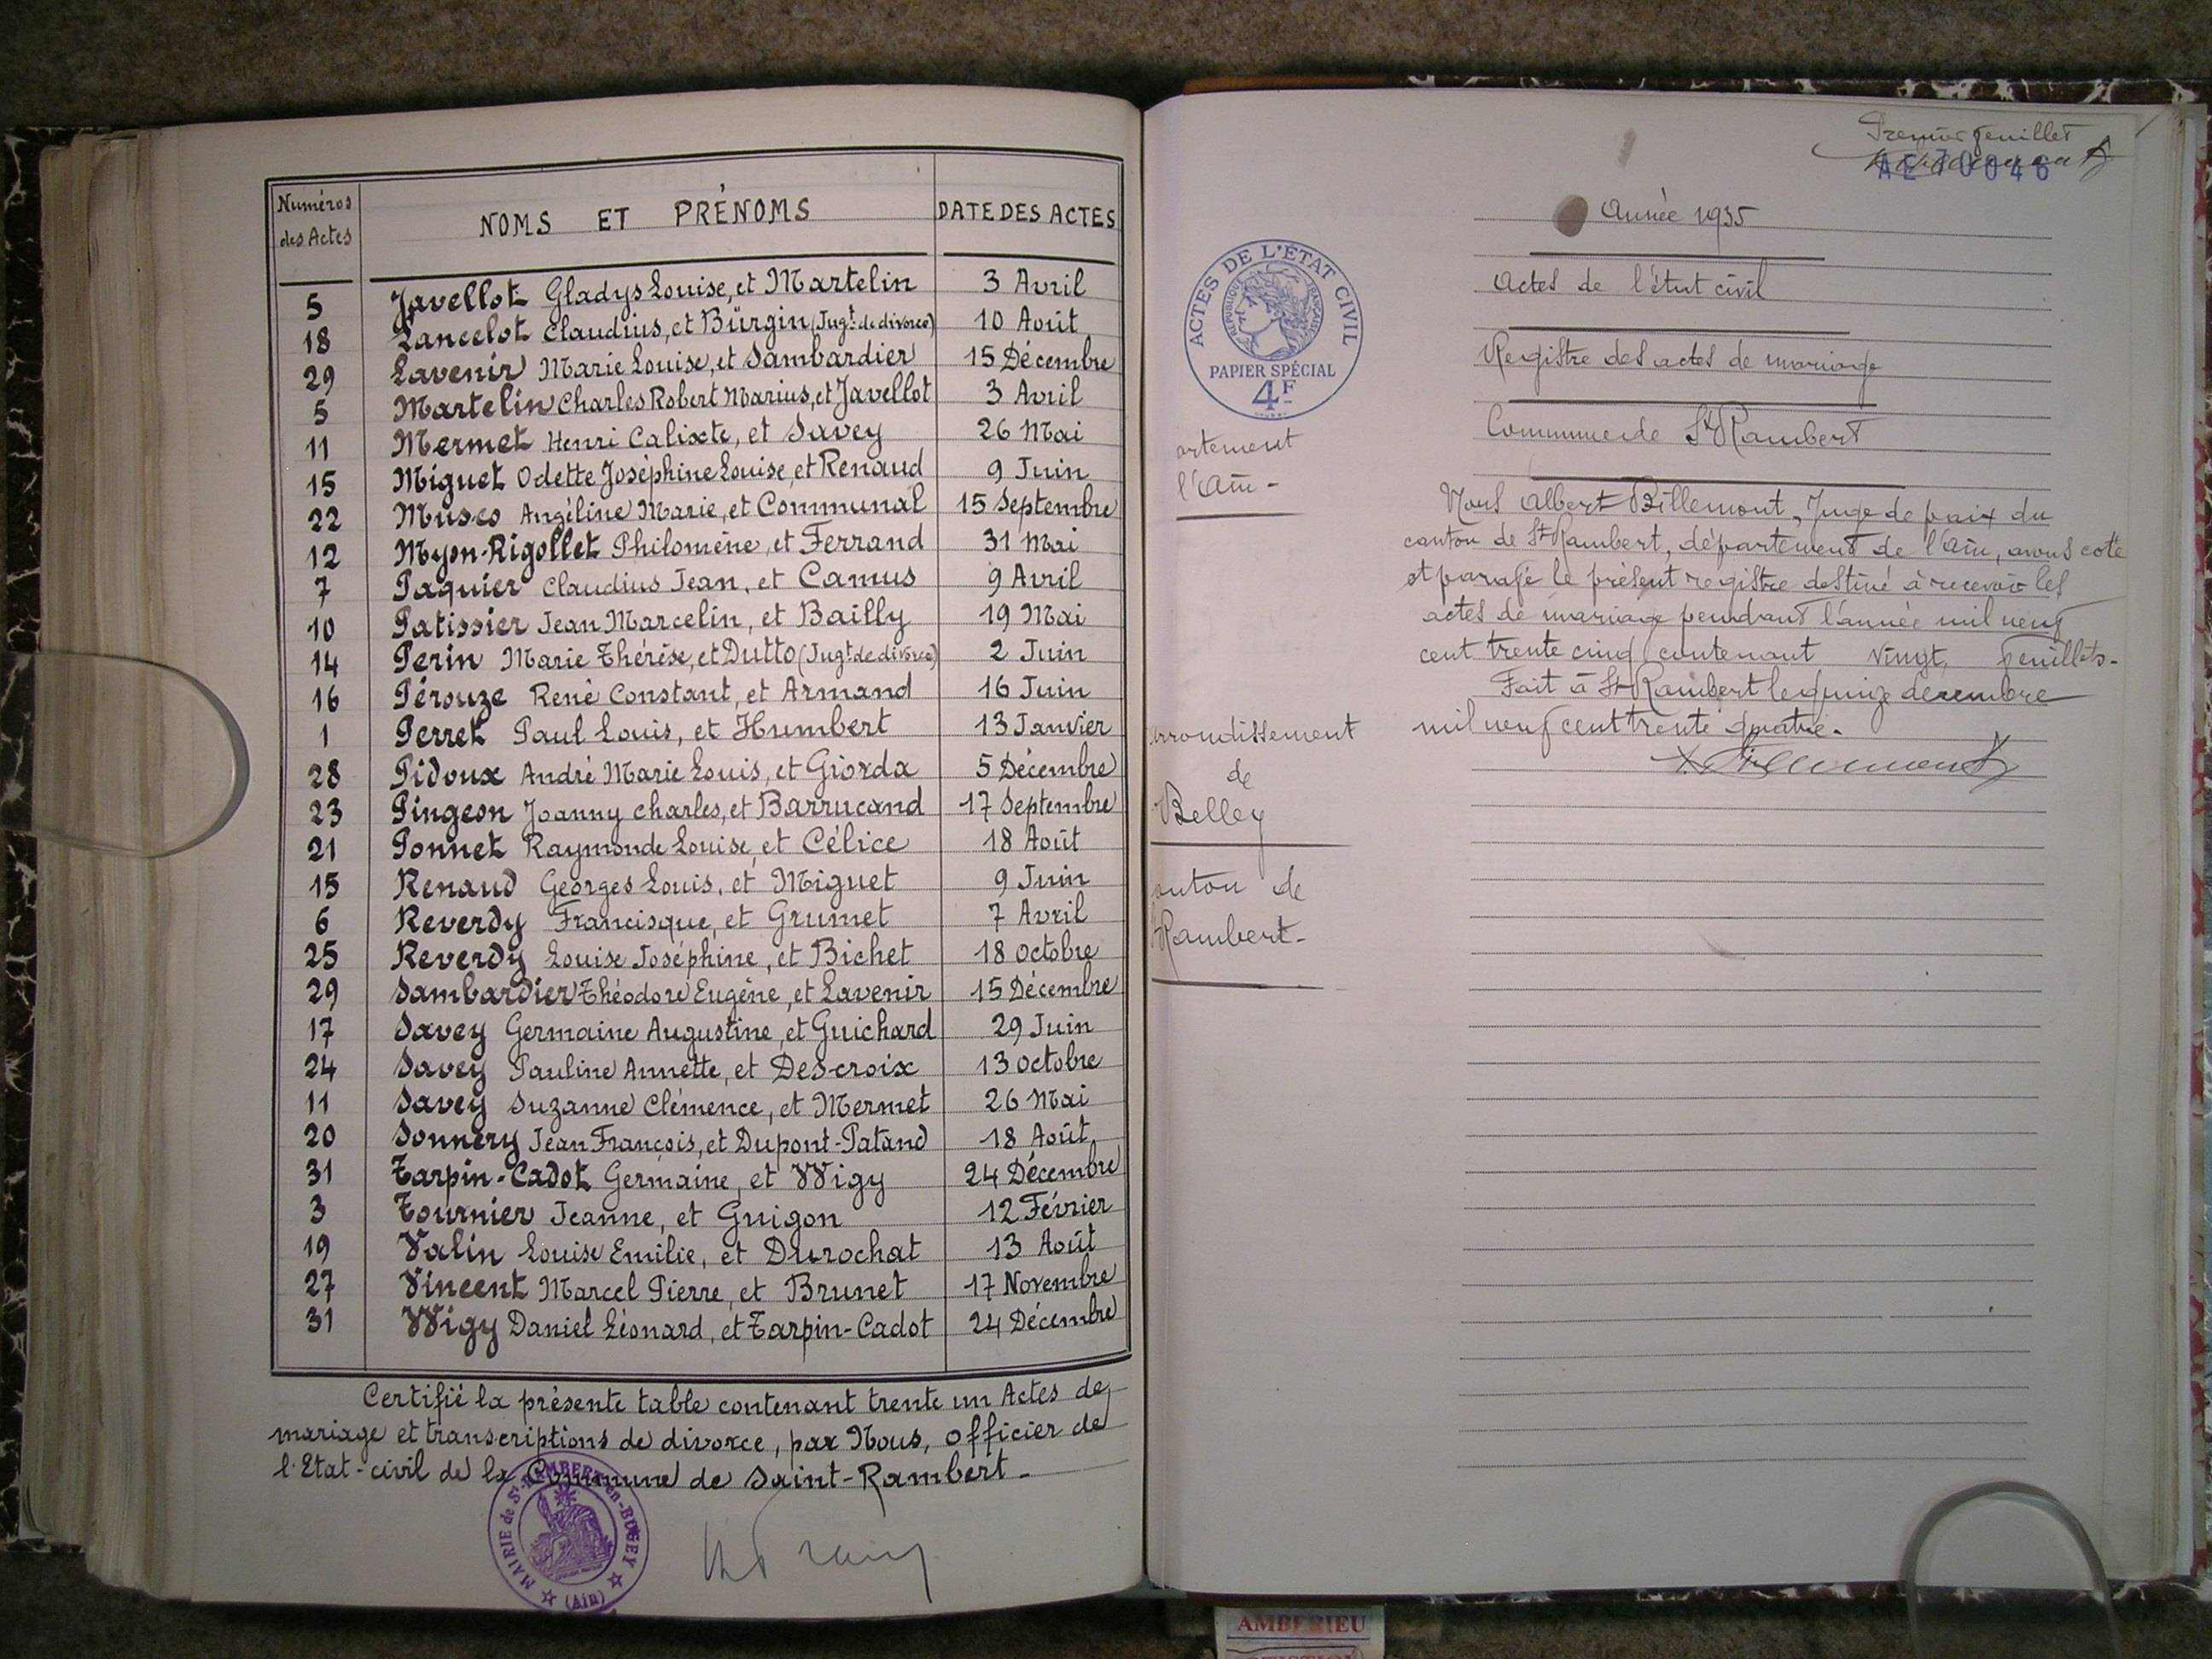 Numéros
des Actes
NOMS ET PRÉNOMS
DATE DES ACTES
5 Javellot Gladys Louise, et Martelin 3 Avril
18 Lancelot Claudius, et Bürgin (Jugt de divorce) 10 Août
29 Lavenir Marie Louise, et Sambardier 15 Décembre
5 Martelin Charles Robert Marius, et Javellot 3 Avril
11 Mermet Henri Calixte, et Savey 26 Mai
15 Miguet Odette Joséphine Louise, et Renaud 9 Juin
22 Musco Angéline Marie, et Communal 15 Septembre
12 Myon-Rigollet Philomène, et Ferrand 31 Mai
7 Paquier Claudius Jean, et Camus 9 Avril
10 Patissier Jean Marcelin, et Bailly 19 Mai
14 Perin Marie Thérèse, et Dutto (Jugt de divorce) 2 Juin
16 Pérouze René Constant, et Armand 16 Juin
1 Perret Paul Louis, et Humbert 13 Janvier
28 Pidoux André Marie Louis, et Giorda 5 Décembre
23 Pingeon Joanny Charles, et Barrucand 17 Septembre
21 Ponnet Raymonde Louise, et Célice 18 Août
15 Renaud Georges Louis, et Miguet 9 Juin
6 Reverdy Francisque, et Grumet 7 Avril
25 Reverdy Louise Joséphine, et Bichet 18 Octobre
29 Sambardier Théodore Eugène, et Lavenir 15 Décembre
17 Savey Germaine Augustine, et Guichard 29 Juin
24 Savey Pauline Annette, et Descroix 13 Octobre
11 Savey Suzanne Clémence, et Mermet 26 Mai
20 Sonnery Jean François, et Dupont-Patand 18 Août
31 Tarpin-Cadot Germaine, et Wigy 24 Décembre
3 Tournier Jeanne, et Guigon 12 Février
19 Valin Louise Emilie, et Durochat 13 Août
27 Vincent Marcel Pierre, et Brunet 17 Novembre
31 Wigy Daniel Léonard, et Tarpin-Cadot 24 Décembre
Certifié la présente table contenant trente un Actes de
mariage et transcriptions de divorce, par Nous, officier de
l'Etat-civil de la Commune de Saint-Rambert.
MAIRIE de St-RAMBERT-en-BUGEY
(Ain)
Premier feuillet
AE 70046
ACTES DE L'ÉTAT CIVIL
RÉPUBLIQUE FRANÇAISE
PAPIER SPÉCIAL
4F
artement
l'Ain -
arrondissement
de
Belley
anton de
Rambert -
Année 1935
Actes de l'état civil
Registre des actes de mariage
Commune de St Rambert
Nous Albert Billemont, Juge de paix du
canton de St Rambert, département de l'Ain, avons coté
et parafé le présent registre destiné à recevoir les
actes de mariage pendant l'année mil neuf
cent trente cinq contenant vingt feuillets.
Fait à St Rambert le quinze décembre
mil neuf cent trente quatre.
AMBERIEU